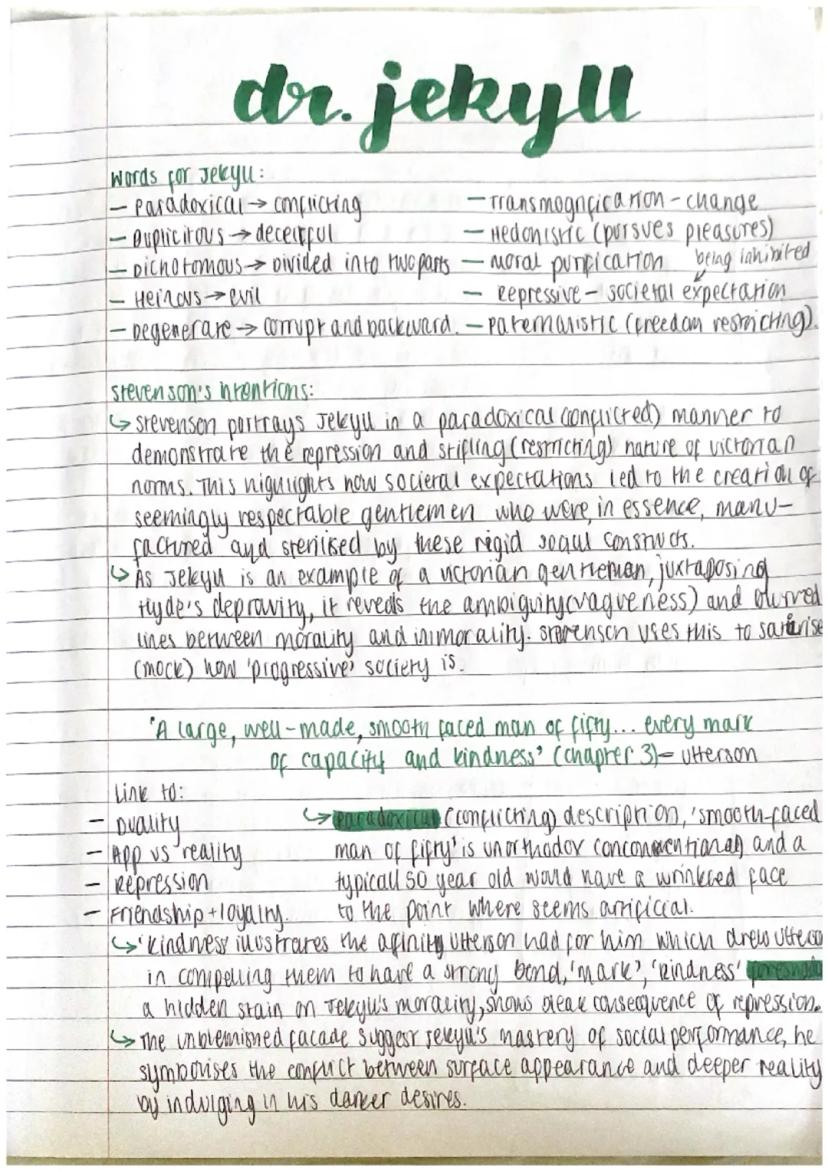 dr. jekyll
Words for Jekyll:
– Paradoxical → conflicting
– Duplicitous → deceitful
– Dichotomous → Divided into two parts
– Heinous → evil
– Degenerate → corrupt and backward.
– Transmogrification – change
– Hedonistic (pursues pleasures)
– Moral purification
being inhibited
– Repressive – societal expectation
– Paternalistic (freedom restricting).
Stevenson's intentions:
↳ Stevenson portrays Jekyll in a paradoxical (conflicted) manner to
demonstrate the repression and stifling (restricting) nature of victorian
norms. This highlights how societal expectations led to the creation of
seemingly respectable gentlemen who were, in essence, manu-
factured and sterilised by these rigid social constructs.
↳ As Jekyll is an example of a victorian gentleman, juxtaposing
Hyde's depravity, it reveals the ambiguity (vagueness) and blurred
lines between morality and immorality. Stevenson uses this to satirise
(mock) how 'progressive' society is.
'A large, well-made, smooth faced man of fifty... every mark
of capacity and kindness' (chapter 3) – Utterson
Link to:
– Duality
– App vs reality
– Repression
– Friendship + loyalty.
↳ Paradoxical (conflicting) description, 'smooth-faced
man of fifty' is unorthodox and a
typicall 50 year old would have a wrinkled face
to the point where seems artificial.
↳ 'Kindness illustrates the afinity Utterson had for him which drew
in compelling them to have a strong bond, 'mark', 'kindness'
a hidden stain on Jekyll's morality, shows bleak consequence of repression.
↳ The unblemished facade suggest Jekyll's mastery of social performance, he
symbolises the conflict between surface appearance and deeper reality
by indulging in his darker desires.